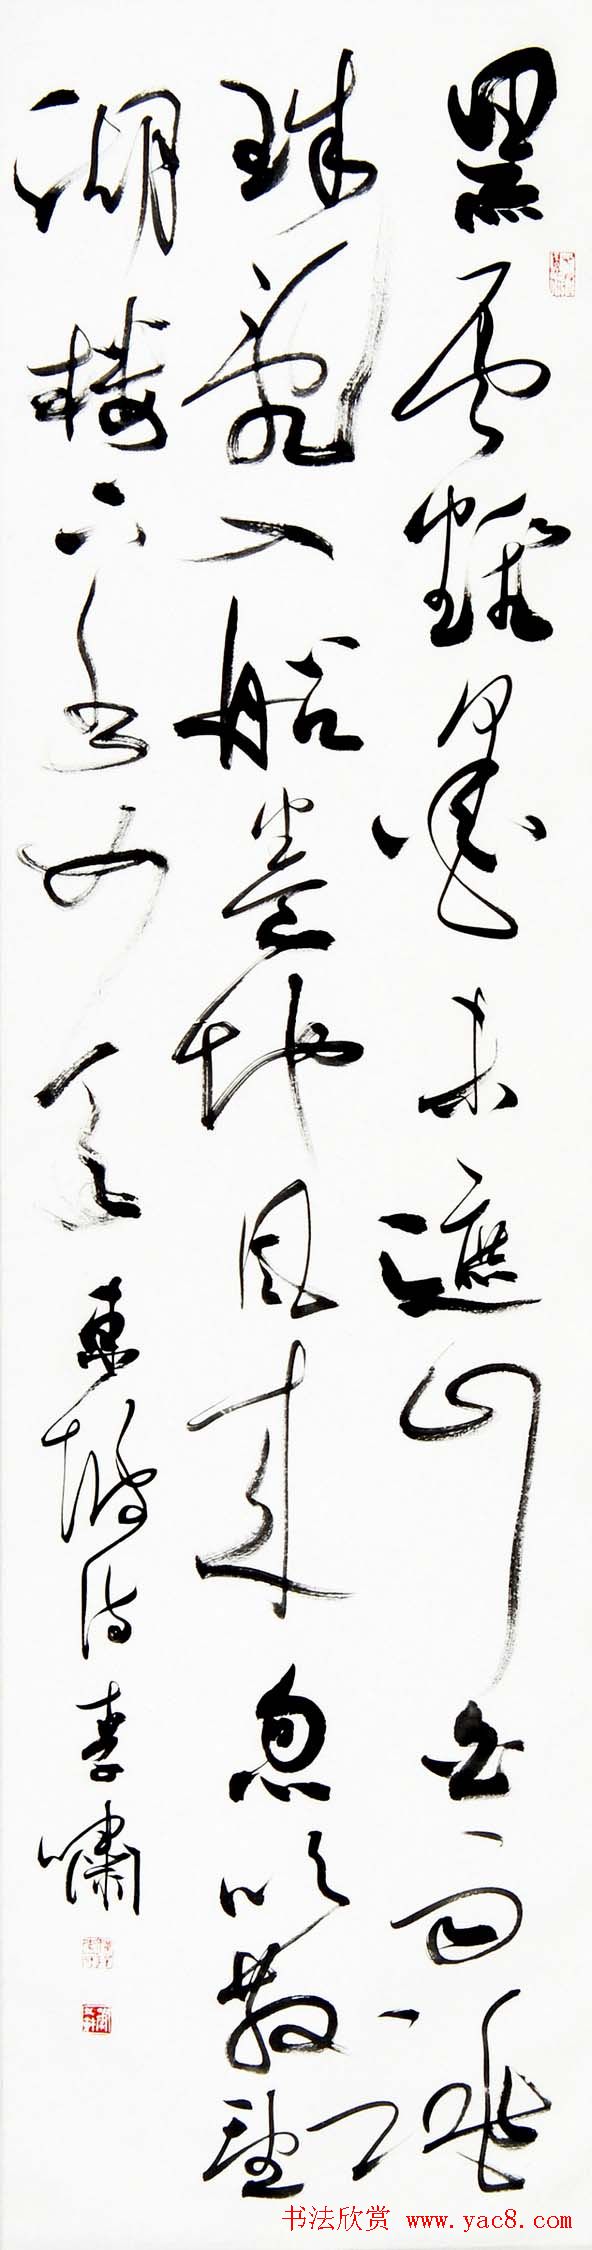 黑雲翻墨未遮山白雨跳
珠亂入船卷地風來忽吹散望
湖樓下水如天 東坡詩 李嘯
书法欣赏 www.yac8.com